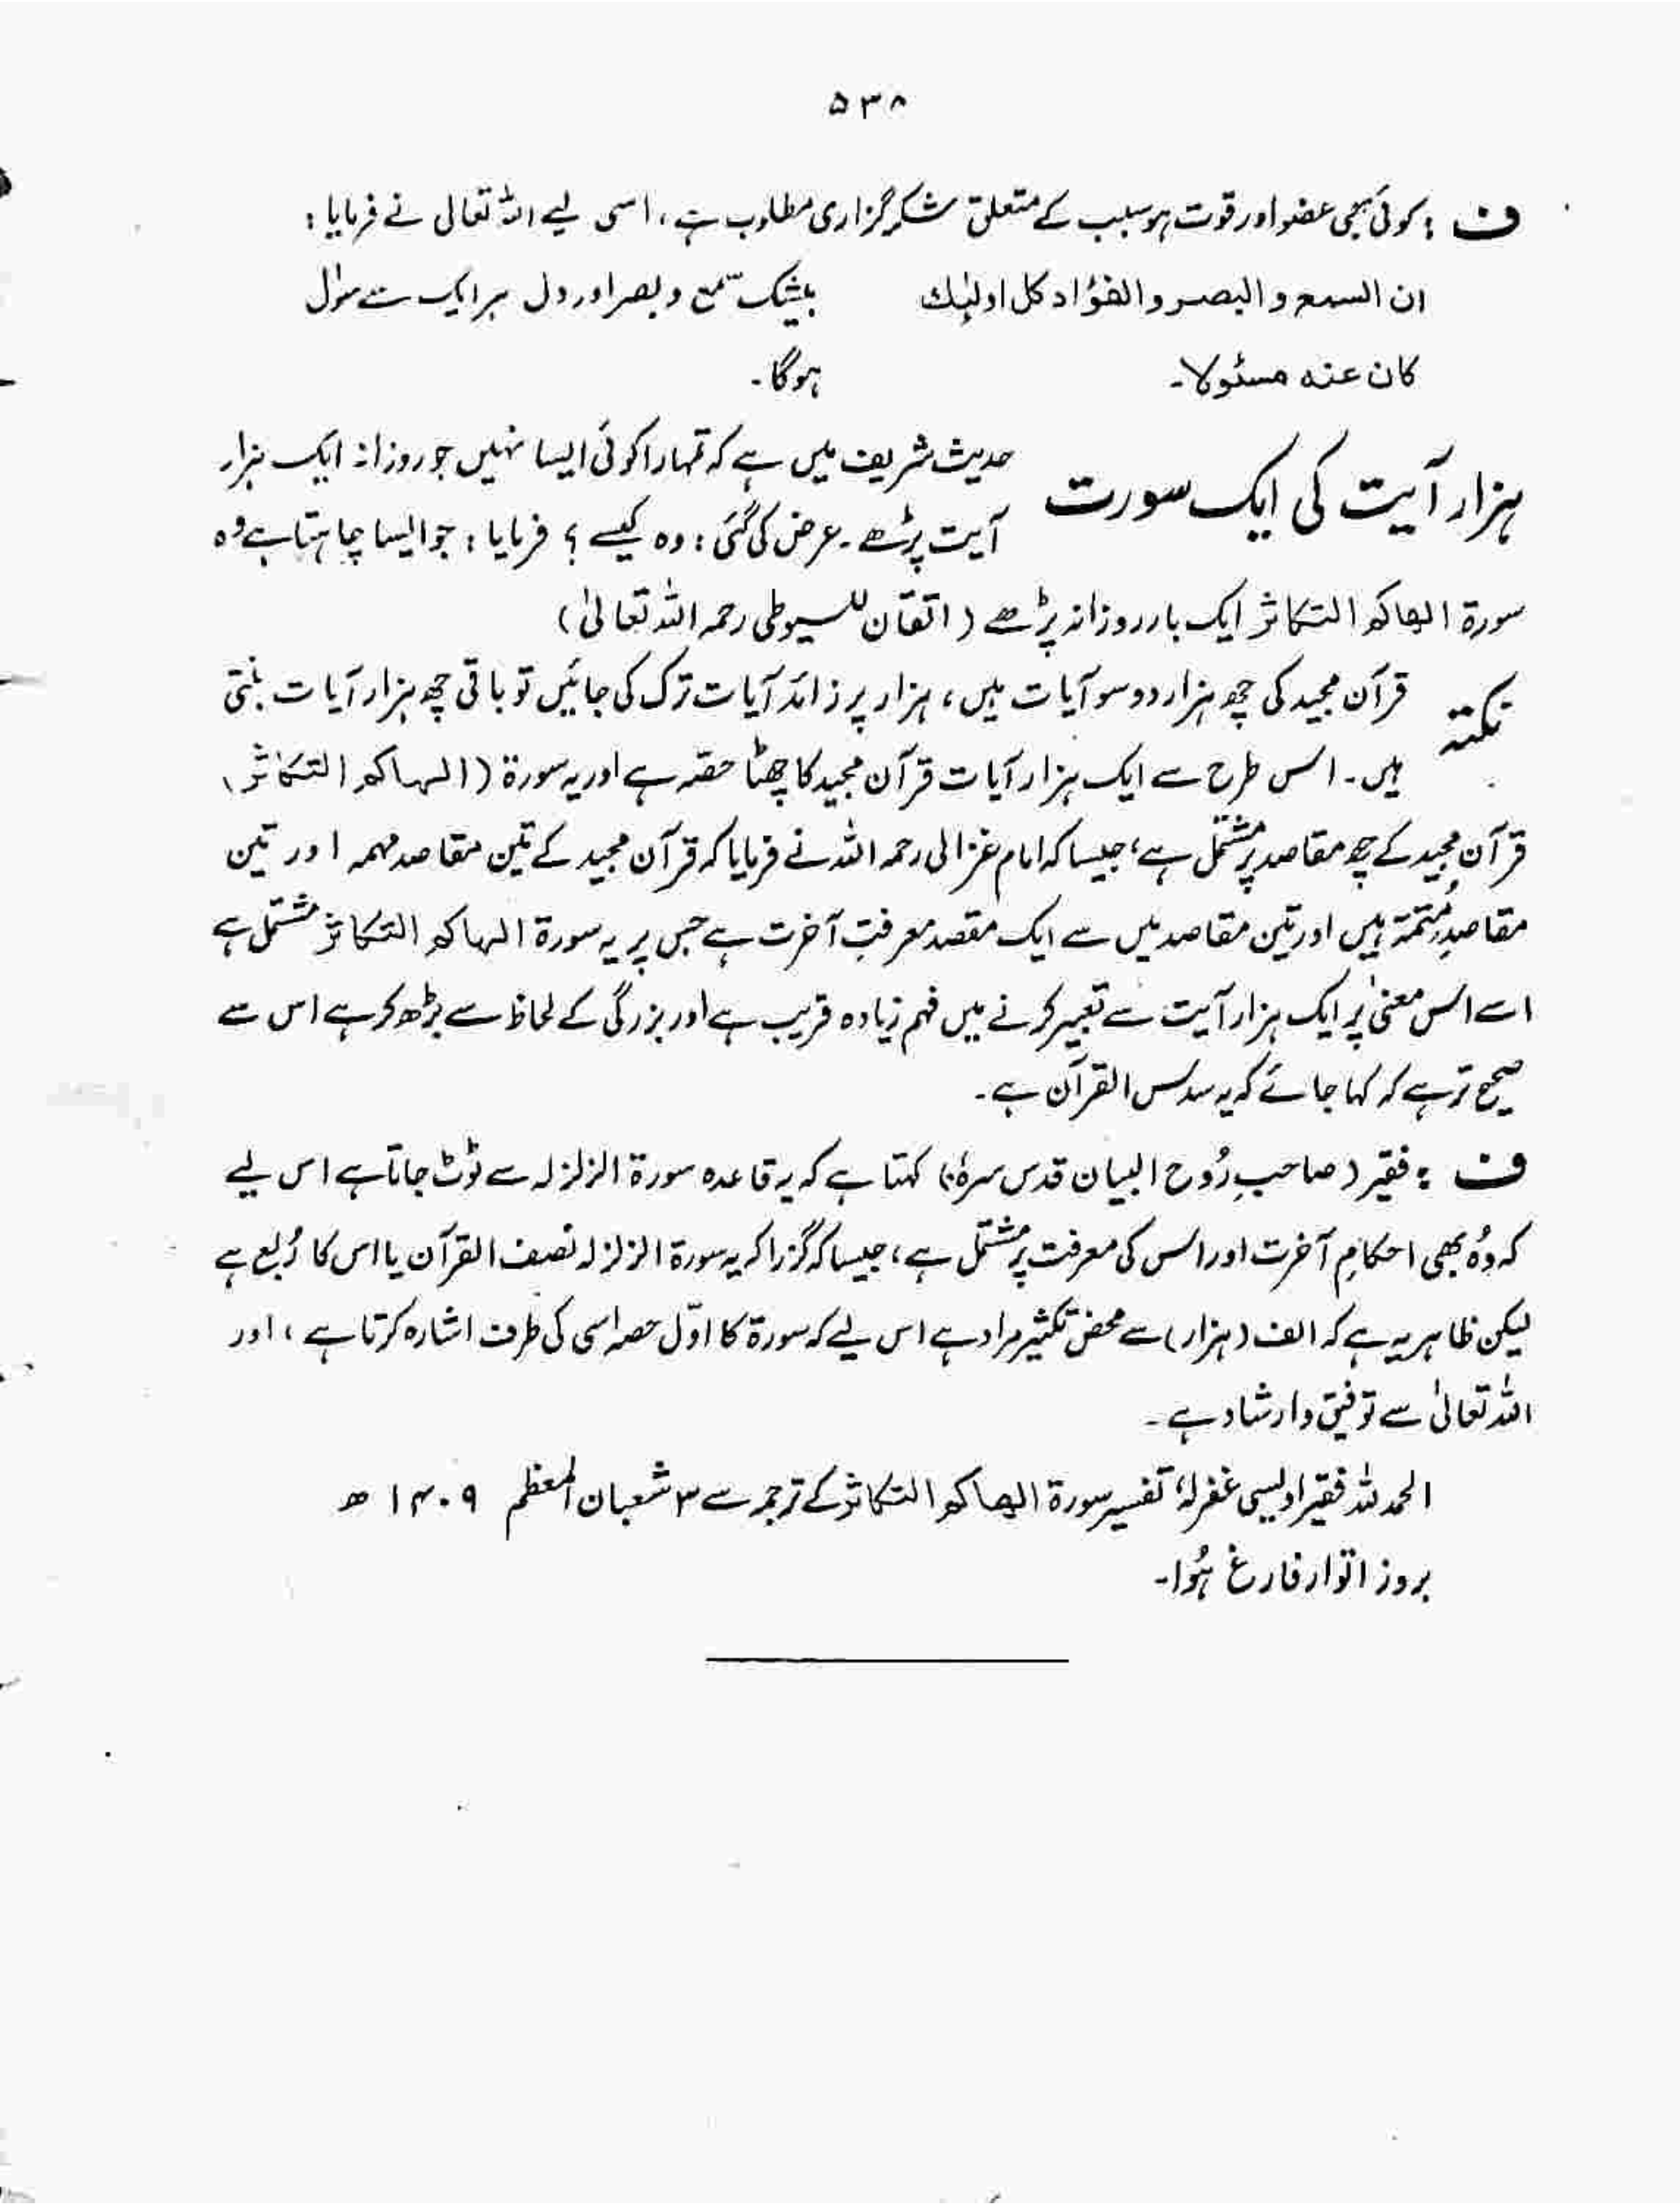 ۵۳۸
ف : کوئی بھی عضو اور قوت ہو سبب کے متعلق شکر گزاری مطلوب ہے، اسی لیے اللہ تعالی نے فرمایا :
ان السمع و البصر و الفؤاد کل اولٰئِك
بیشک سمع و بصر اور دل ہر ایک سے سوال
کان عنه مسئولا۔
ہوگا۔
ہزار آیت کی ایک سورت
حدیث شریف میں ہے کہ تمہارا کوئی ایسا نہیں جو روزانہ ایک ہزار
آیت پڑھے۔ عرض کی گئی : وہ کیسے ؟ فرمایا : جو ایسا چاہتا ہے وہ
سورۃ الھاکم التکاثر ایک بار روزانہ پڑھے ( اتقان للسیوطی رحمہ اللہ تعالیٰ )
نکتہ
قرآن مجید کی چھ ہزار دو سو آیات ہیں ، ہزار پر زائد آیات ترک کی جائیں تو باقی چھ ہزار آیات بنتی
ہیں۔ اس طرح سے ایک ہزار آیات قرآن مجید کا چھٹا حصہ ہے اور یہ سورۃ ( الہاکم التکاثر )
قرآن مجید کے چھ مقاصد پر مشتمل ہے ، جیسا کہ امام غزالی رحمہ اللہ نے فرمایا کہ قرآن مجید کے تین مقاصد مہمہ اور تین
مقاصدِ مُتِمّہ ہیں اور تین مقاصد میں سے ایک مقصد معرفتِ آخرت ہے جس پر یہ سورۃ الہاکم التکاثر مشتمل ہے
اسے اس معنیٰ پر ایک ہزار آیت سے تعبیر کرنے میں فہم زیادہ قریب ہے اور بزرگی کے لحاظ سے بڑھ کر ہے اس سے
صحیح تر ہے کہ کہا جائے کہ یہ سدس القرآن ہے ۔
ف : فقیر ( صاحبِ رُوح البیان قدس سرہٗ ) کہتا ہے کہ یہ قاعدہ سورۃ الزلزلہ سے ٹوٹ جاتا ہے اس لیے
کہ وُہ بھی احکامِ آخرت اور اس کی معرفت پر مشتمل ہے ، جیسا کہ گزرا کہ یہ سورۃ الزلزلہ نصف القرآن یا اس کا رُبع ہے
لیکن ظاہر یہ ہے کہ الف ( ہزار ) سے محض تکثیر مراد ہے اس لیے کہ سورۃ کا اوّل حصہ اسی کی طرف اشارہ کرتا ہے ، اور
اللہ تعالیٰ سے توفیق و ارشاد ہے ۔
الحمد للہ فقیر اویسی غفرلہٗ تفسیر سورۃ الھاکم التکاثر کے ترجمہ سے ۳ شعبان المعظم ۱۴۰۹ ھ
بروز اتوار فارغ ہُوا۔